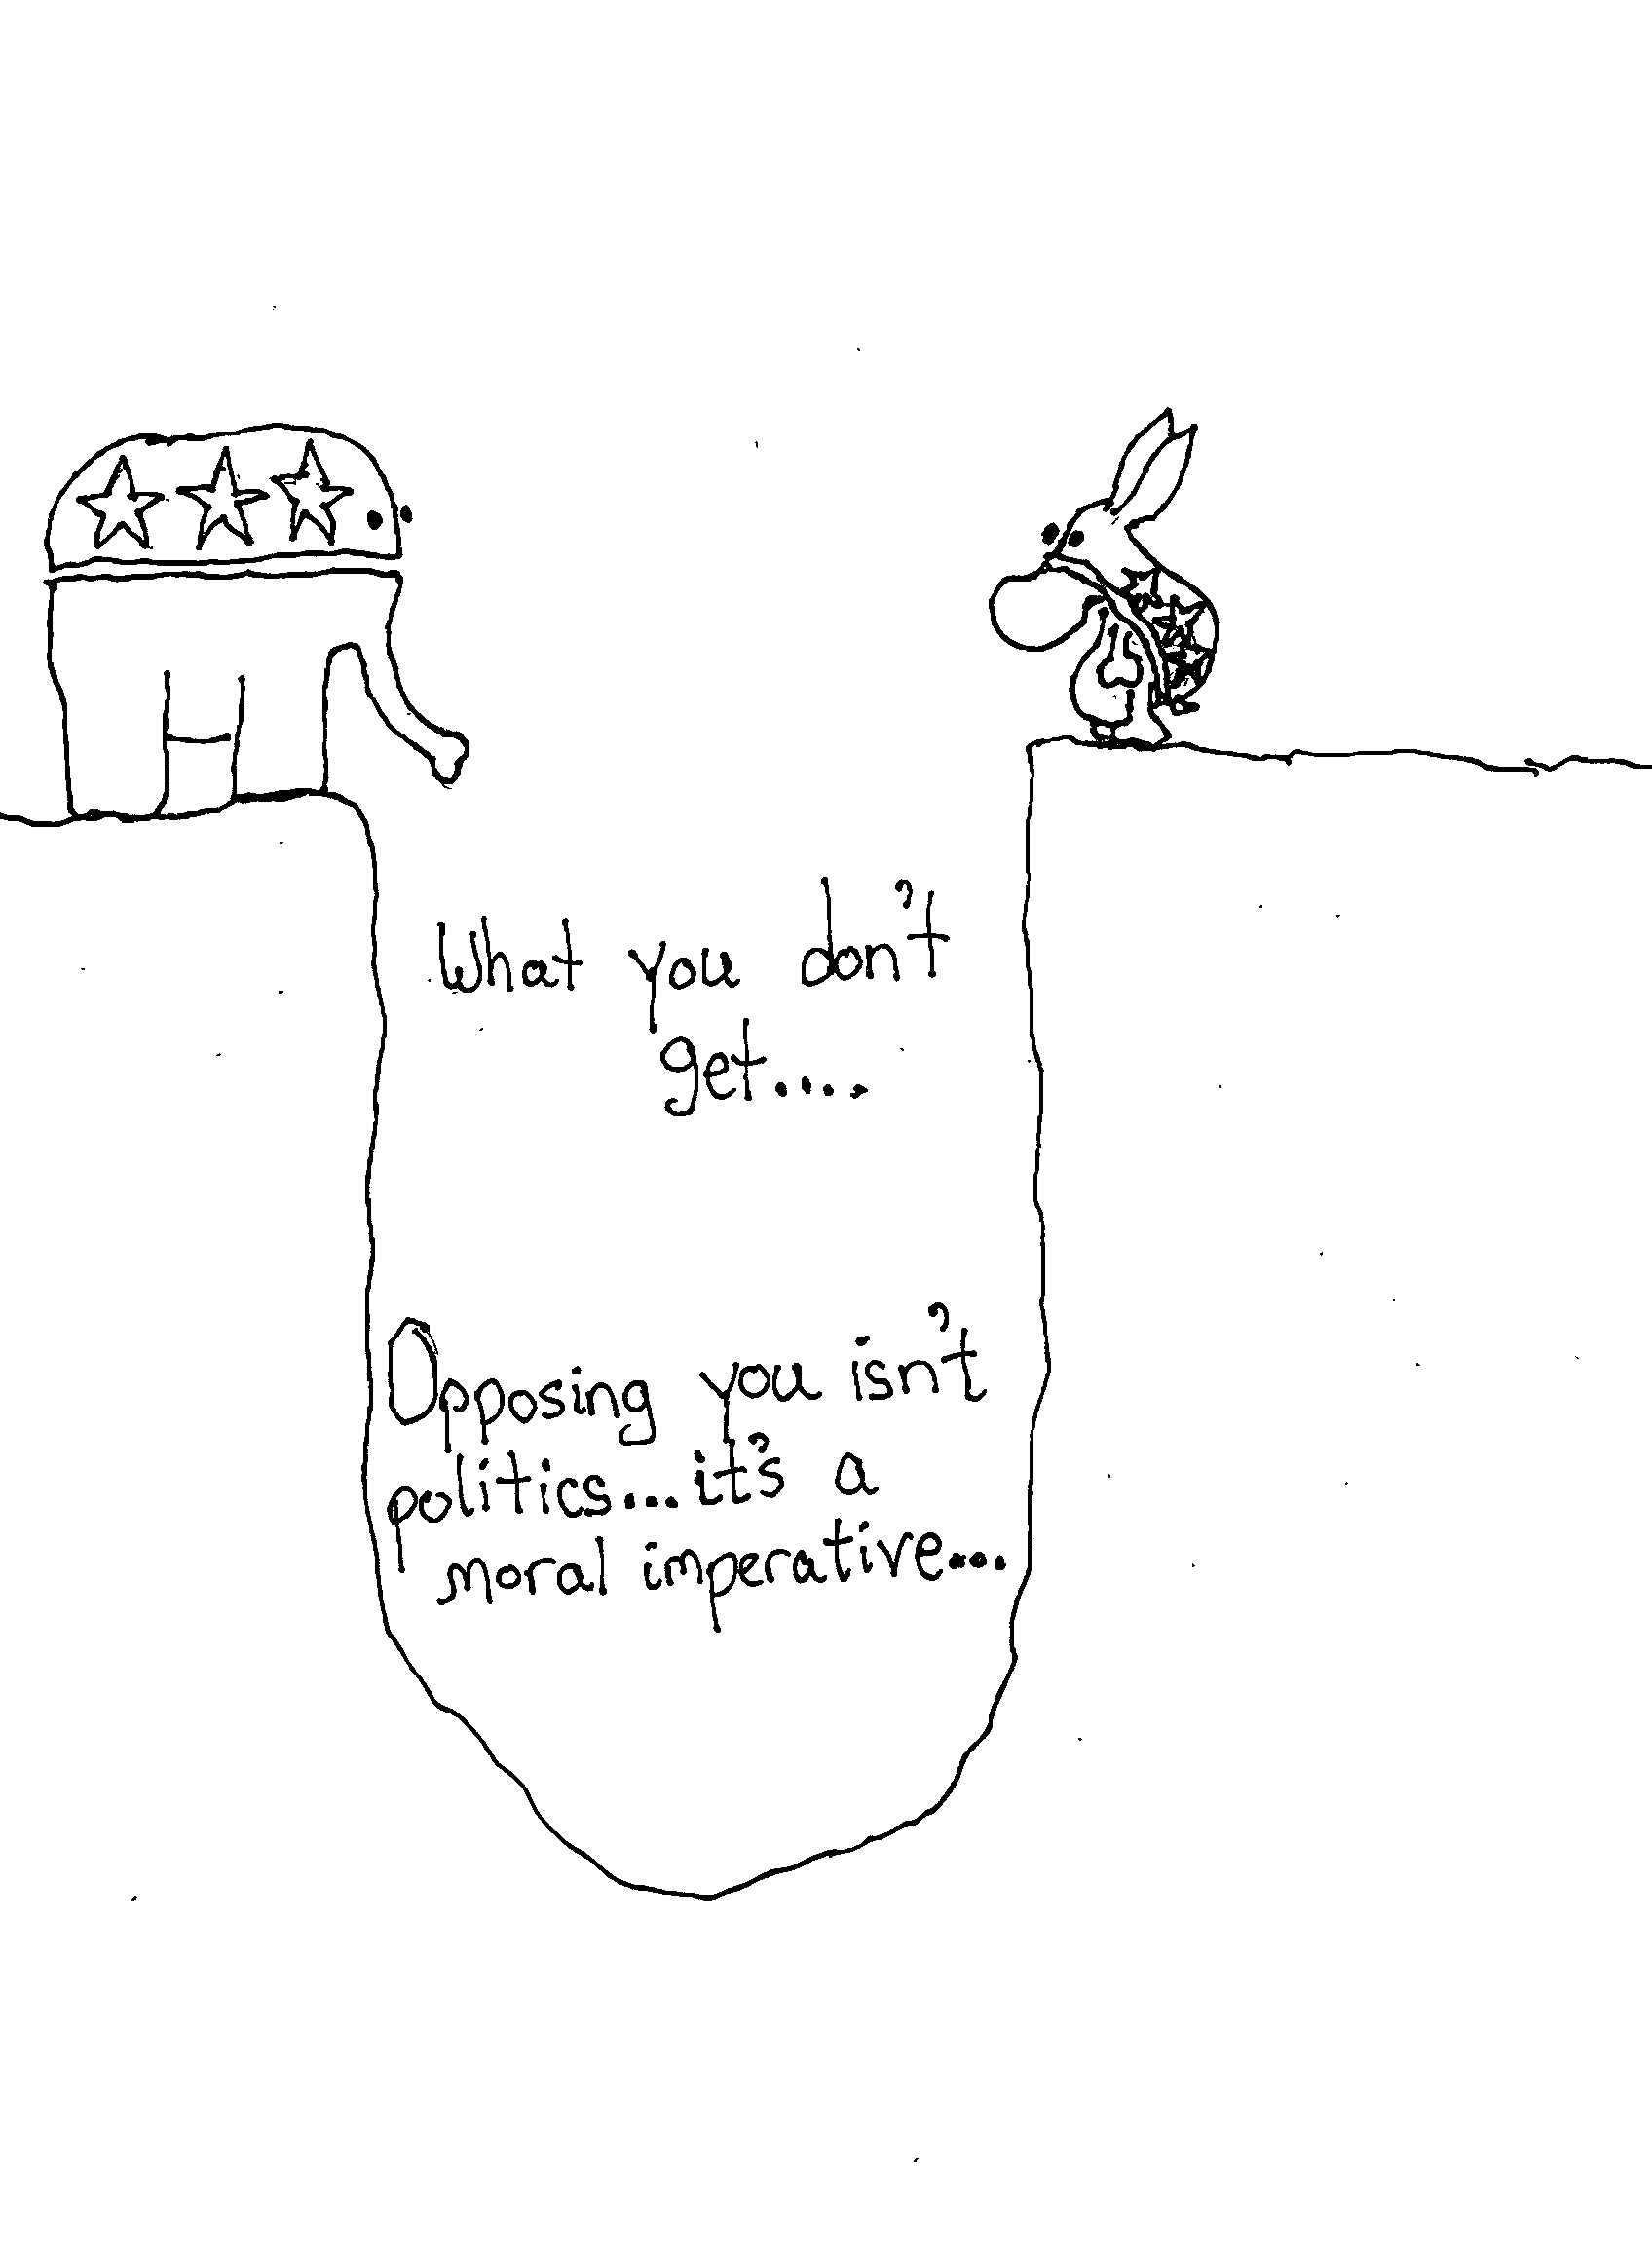 What you don't
get....
Opposing you isn't
politics...it's a
moral imperative...